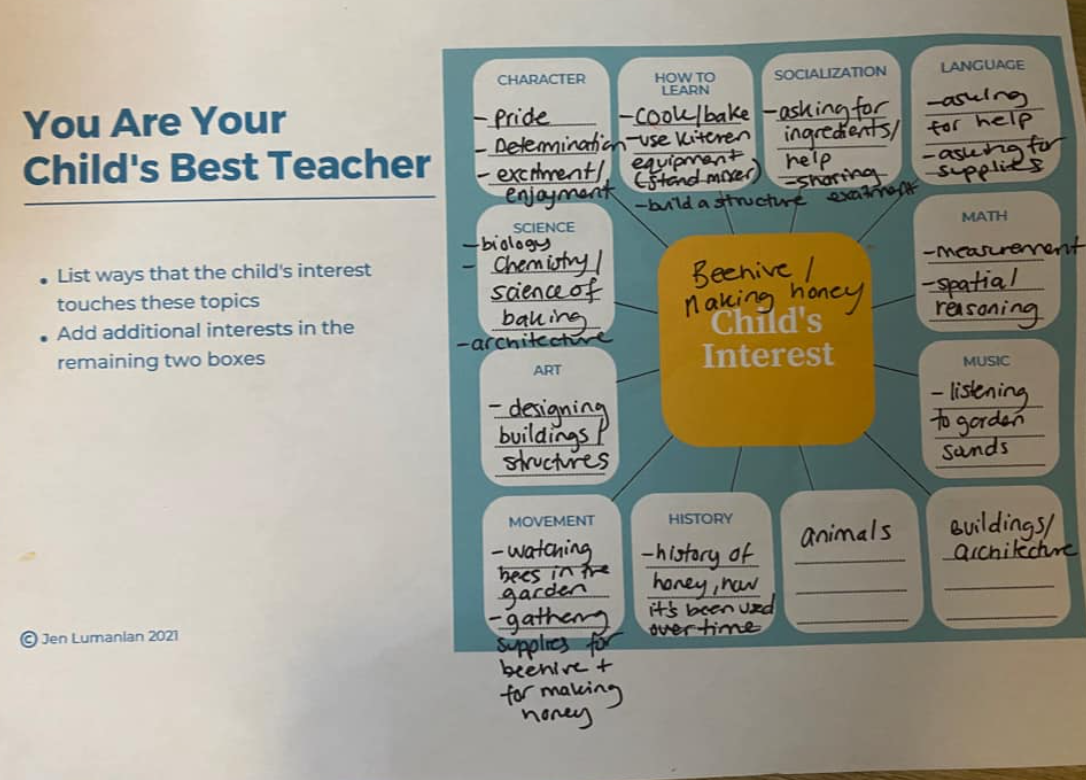 You Are Your
Child's Best Teacher
• List ways that the child's interest
touches these topics
• Add additional interests in the
remaining two boxes
© Jen Lumanlan 2021
CHARACTER
- Pride
- Determination
- excitment/
enjoyment
HOW TO
LEARN
- cook/bake
- use kitchen
equipment
(stand mixer)
- build a structure
SOCIALIZATION
- asking for
ingredients/
help
- sharing
excitment
LANGUAGE
- asking
for help
- asking for
supplies
SCIENCE
- biology
- Chemistry/
science of
baking
- architecture
Beehive /
Making honey
Child's
Interest
MATH
- measurement
- spatial
reasoning
ART
- designing
buildings/
structures
MUSIC
- listening
to garden
sounds
MOVEMENT
- watching
bees in the
garden
- gathering
supplies for
beehive +
for making
honey
HISTORY
- history of
honey, how
it's been used
over time
animals
Buildings/
architecture